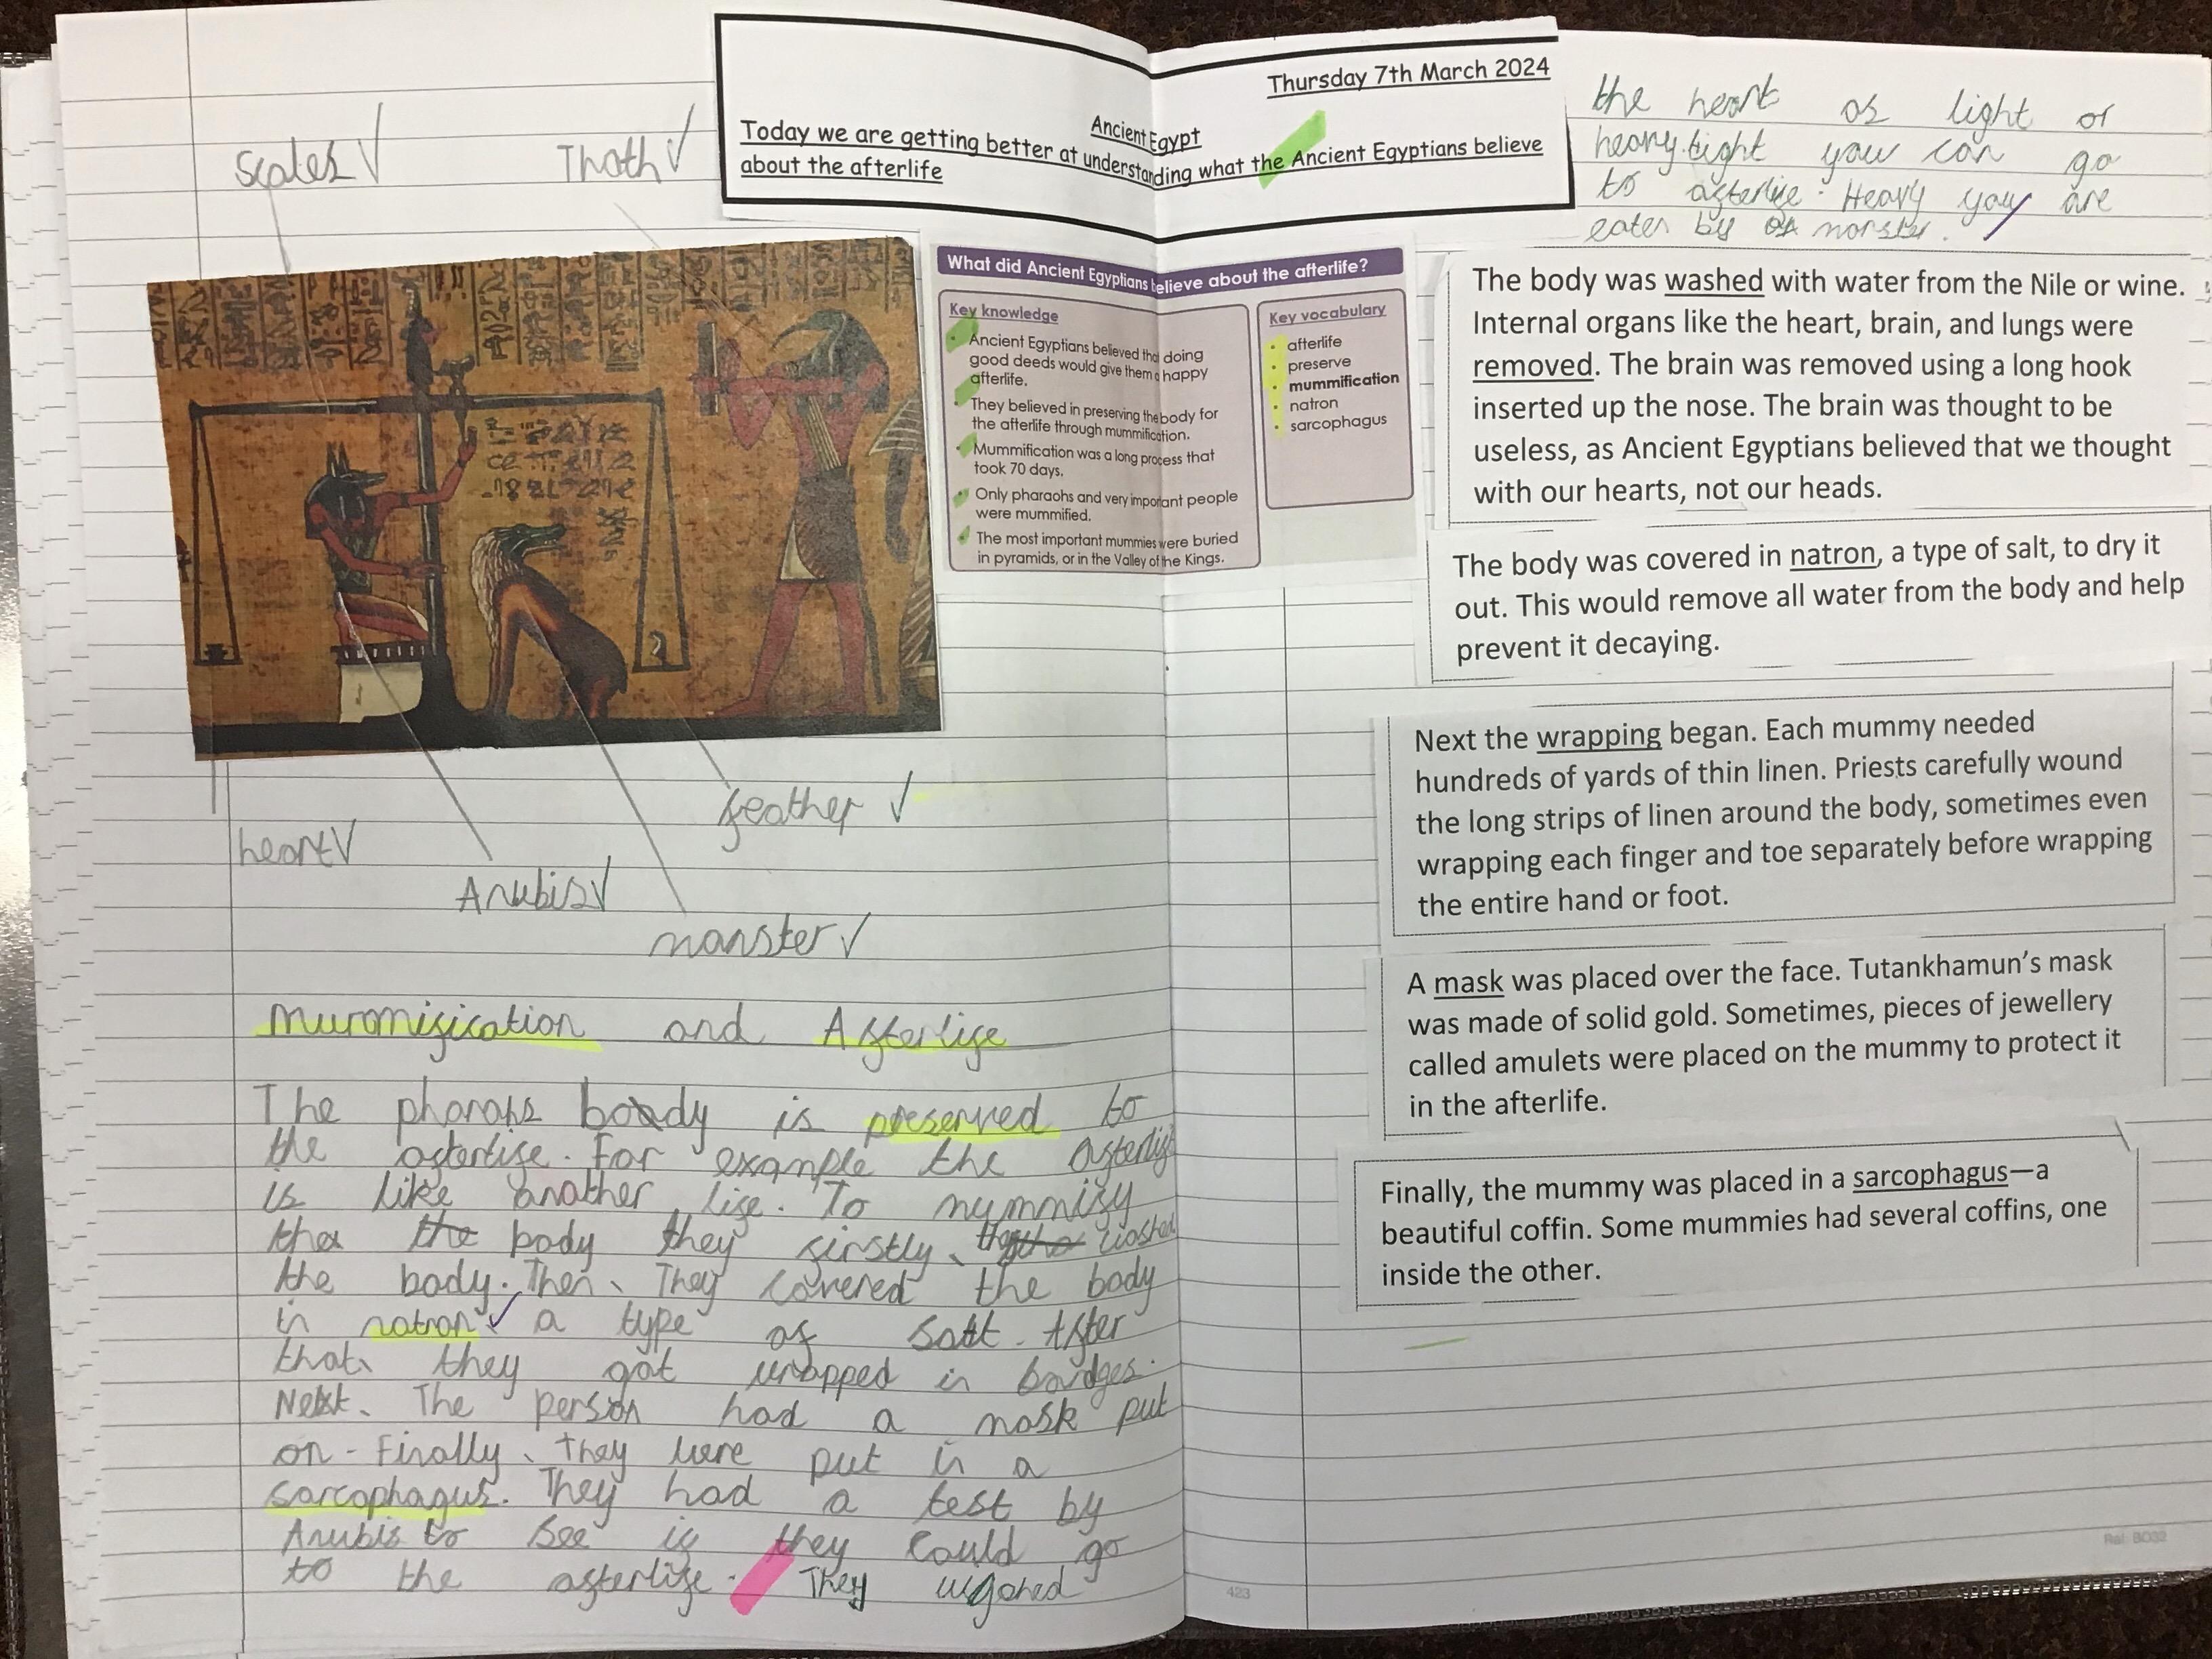 Thursday 7th March 2024
Ancient Egypt
Today we are getting better at understanding what the Ancient Egyptians believe
about the afterlife
scales
Thoth
heart
Anubis
monster
feather
What did Ancient Egyptians believe about the afterlife?
Key knowledge
• Ancient Egyptians believed that doing
good deeds would give them a happy
afterlife.
• They believed in preserving the body for
the afterlife through mummification.
• Mummification was a long process that
took 70 days.
• Only pharaohs and very important people
were mummified.
• The most important mummies were buried
in pyramids, or in the Valley of the Kings.
Key vocabulary
• afterlife
• preserve
• mummification
• natron
• sarcophagus
Mummification and Afterlife
The pharahs body is preserved to
the afterlife. For example the afterlife
is like another life. To mummify
the the body they firstly, washed
the body. Then, They covered the body
in natron, a type of salt. After
that, they got wrapped in bandges.
Next, The person had a mask put
on. Finally, They were put in a
sarcophagus. They had a test by
Anubis to see if they could go
to the afterlife. They
the heart as light or
heavy. Light you can go
to afterlife. Heavy you are
eaten by a monster.
The body was washed with water from the Nile or wine.
Internal organs like the heart, brain, and lungs were
removed. The brain was removed using a long hook
inserted up the nose. The brain was thought to be
useless, as Ancient Egyptians believed that we thought
with our hearts, not our heads.
The body was covered in natron, a type of salt, to dry it
out. This would remove all water from the body and help
prevent it decaying.
Next the wrapping began. Each mummy needed
hundreds of yards of thin linen. Priests carefully wound
the long strips of linen around the body, sometimes even
wrapping each finger and toe separately before wrapping
the entire hand or foot.
A mask was placed over the face. Tutankhamun's mask
was made of solid gold. Sometimes, pieces of jewellery
called amulets were placed on the mummy to protect it
in the afterlife.
Finally, the mummy was placed in a sarcophagus—a
beautiful coffin. Some mummies had several coffins, one
inside the other.
423